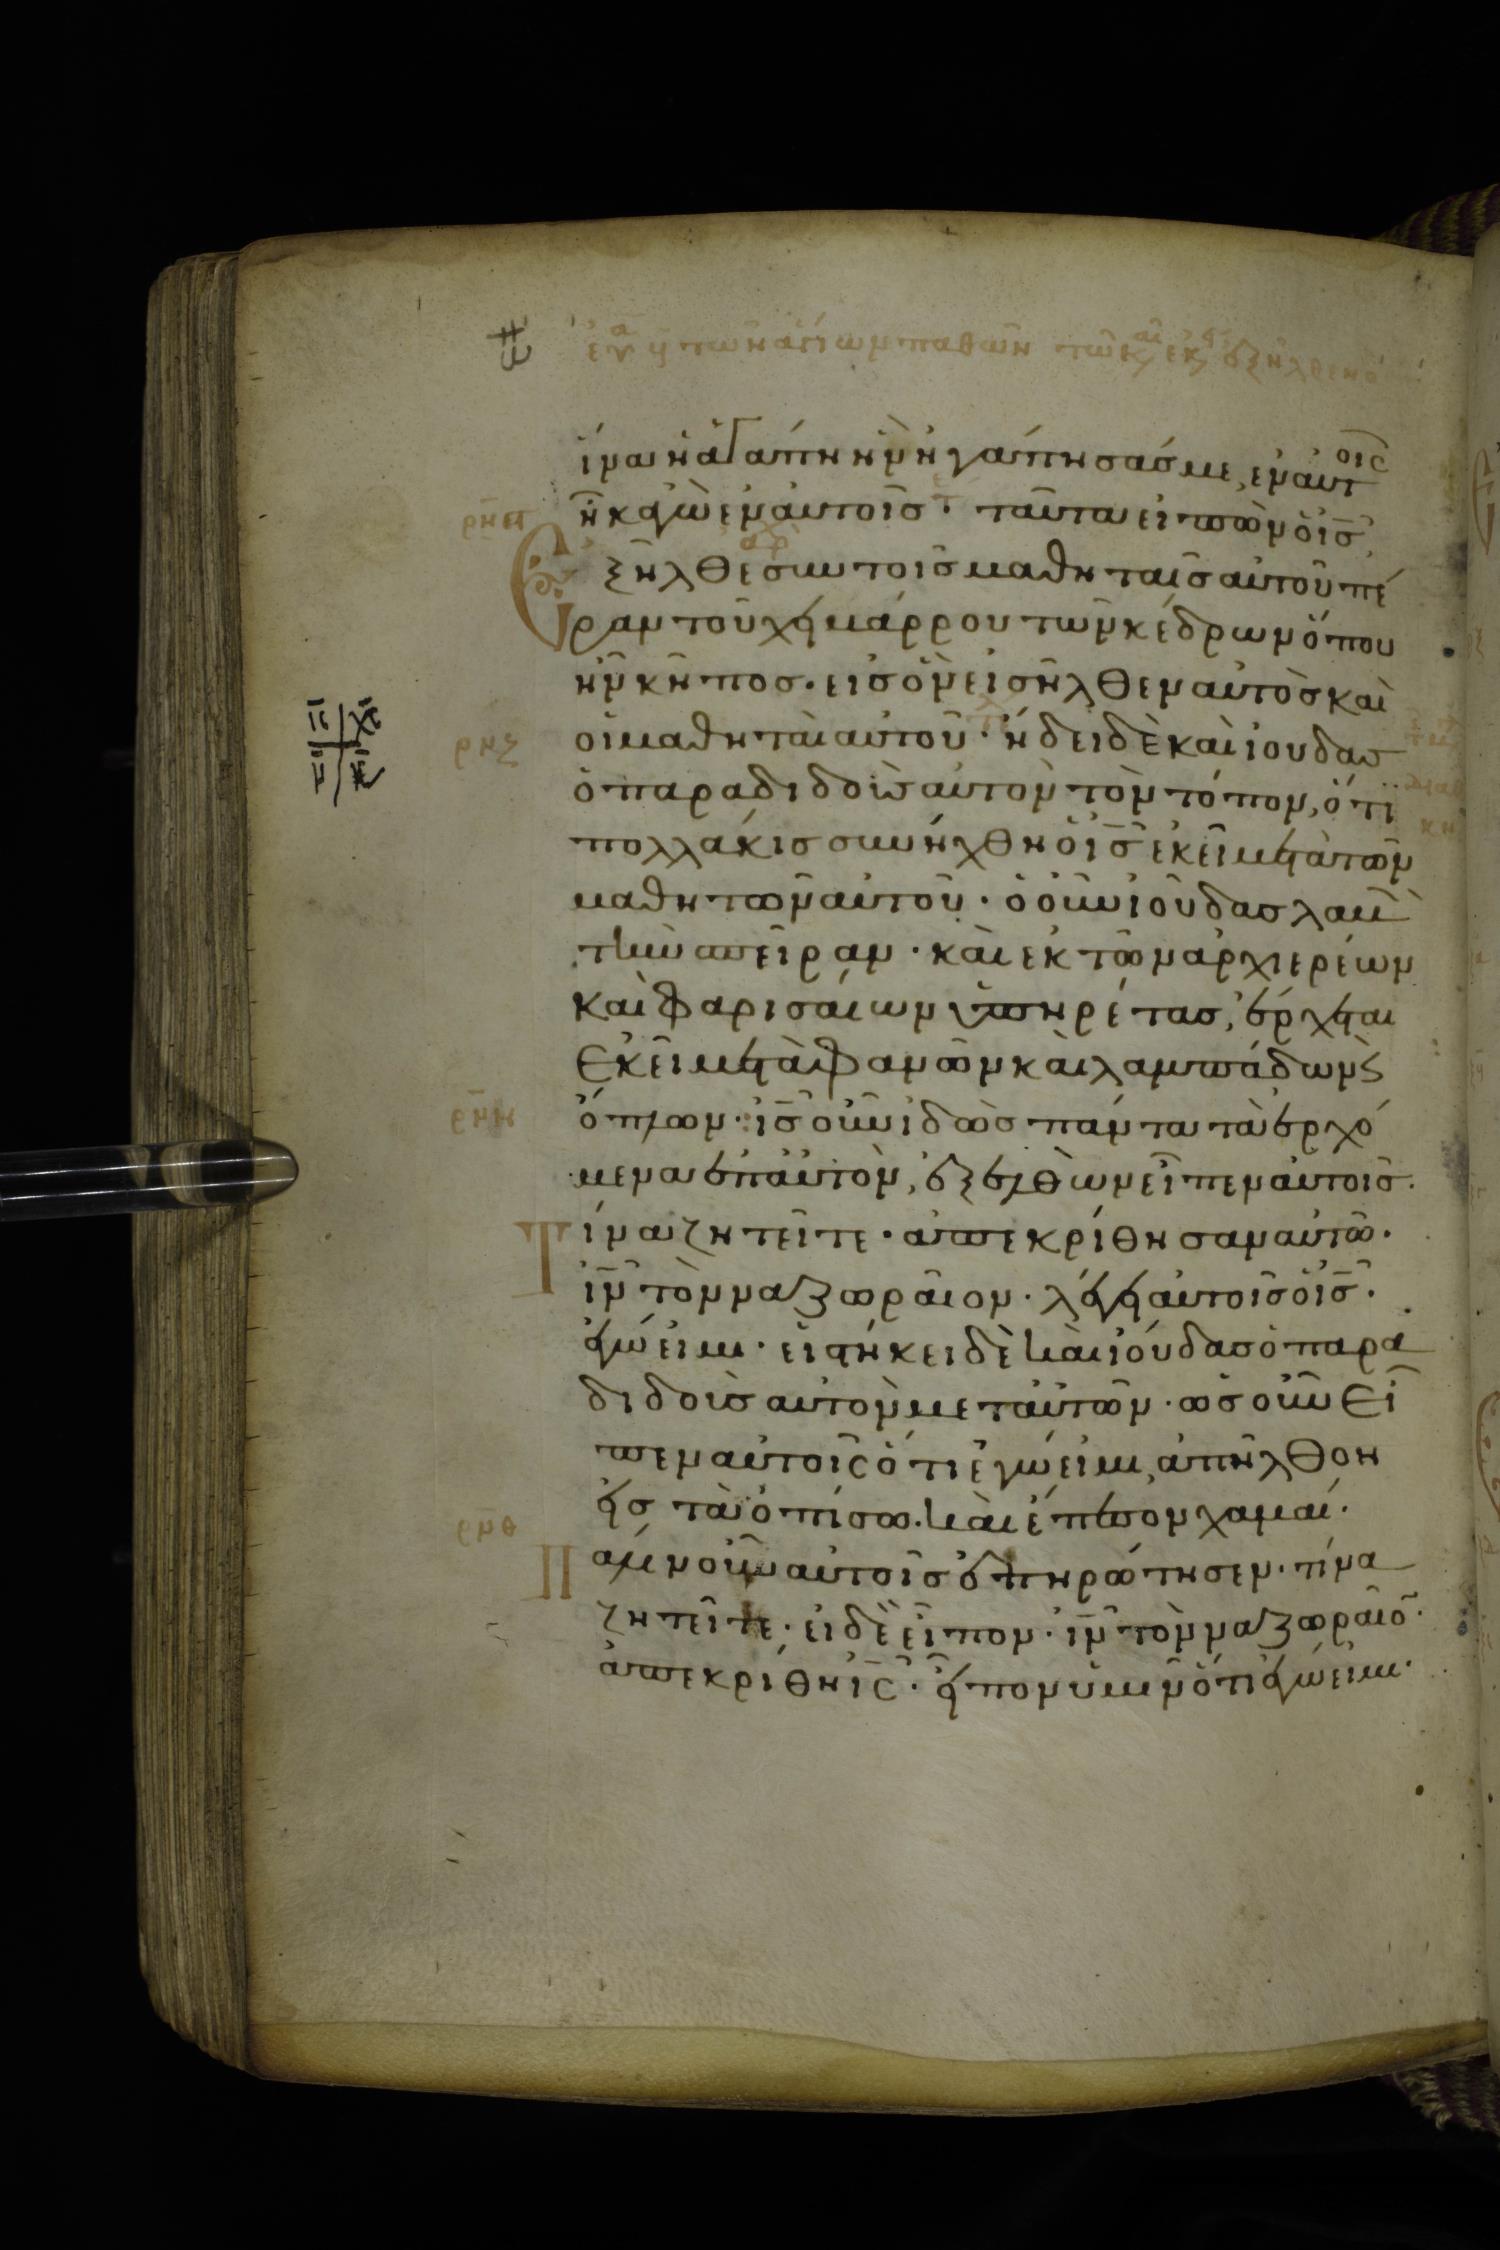 ἵνα ἡ ἀγάπη ἣν ἠγάπησάς με, ἐν αὐτοῖς
ἦ κἀγὼ ἐν αὐτοῖς· ταῦτα εἰπὼν ὁ ις
ρνϛ
Ἐξῆλθε σὺν τοῖς μαθηταῖς αὐτοῦ πέ
ραν τοῦ χειμάρρου τῶν κέδρων ὅπου
ἦν κῆπος· εἰς ὃν εἰσῆλθεν αὐτὸς καὶ
οἱ μαθηταὶ αὐτοῦ· ἤδει δὲ καὶ ἰούδας
ρνζ
ὁ παραδιδοὺς αὐτὸν τὸν τόπον, ὅτι
πολλάκις συνήχθη ὁ ις ἐκεῖ μετὰ τῶν
μαθητῶν αὐτοῦ· ὁ οὖν ἰούδας λαβὼν
τὴν σπεῖραν· καὶ ἐκ τῶν ἀρχιερέων
καὶ φαρισαίων ὑπηρέτας, ἔρχεται
ἐκεῖ μετὰ φανῶν καὶ λαμπάδων ϗ
ρνη
ὅπλων· ις οὖν ἰδὼς πάντα τὰ ἐρχό
μενα ἐπ αὐτὸν, ἐξελθὼν εἶπεν αὐτοῖς·
Τίνα ζητεῖτε· ἀπεκρίθησαν αὐτῶ·
ιν τὸν ναζωραῖον· λέγει αὐτοῖς ὁ ις·
ἐγώ εἰμι· εἱστήκει δὲ καὶ ἰούδας ὁ παρα
διδοὺς αὐτὸν μετ αὐτῶν· ὡς οὖν εἶ
πεν αὐτοῖς ὅτι ἐγώ εἰμι, ἀπῆλθον
εἰς τὰ ὀπίσω· καὶ ἔπεσον χαμαί·
ρνθ
Πάλιν οὖν αὐτοῖς ἐπηρώτησεν· τίνα
ζητεῖτε· οἱ δὲ εἶπον· ιν τὸν ναζωραῖον·
ἀπεκρίθη ις· εἶπον ὑμῖν ὅτι ἐγώ εἰμι·